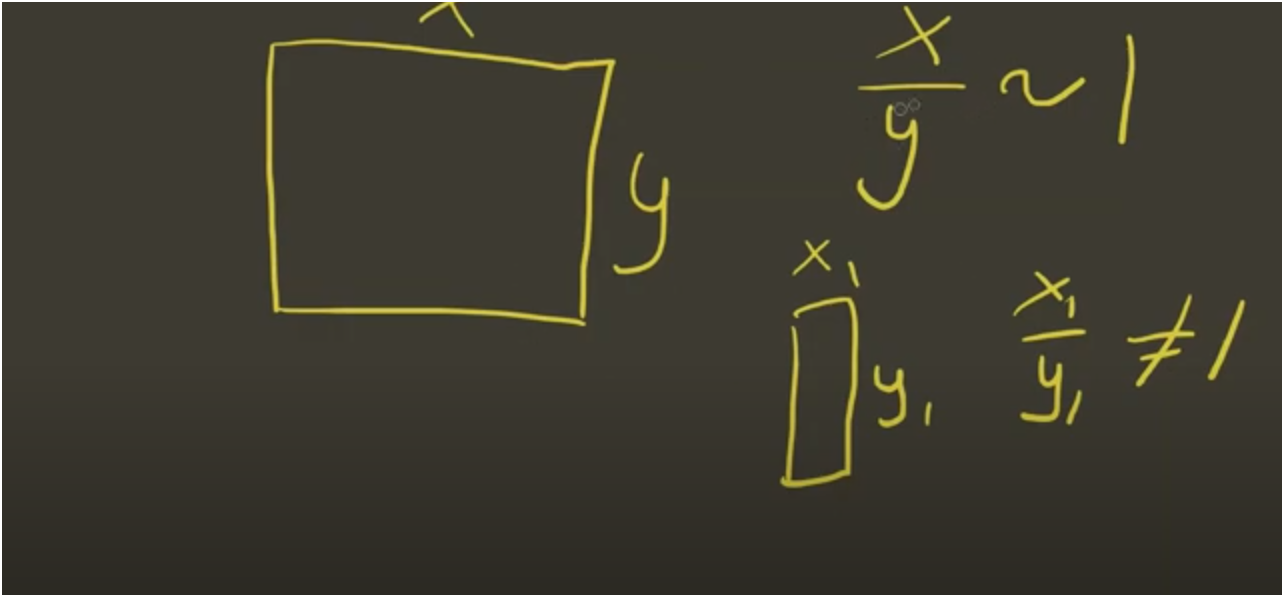 x
y
x/y ~ 1
x₁
y₁
x₁/y₁ ≠ 1